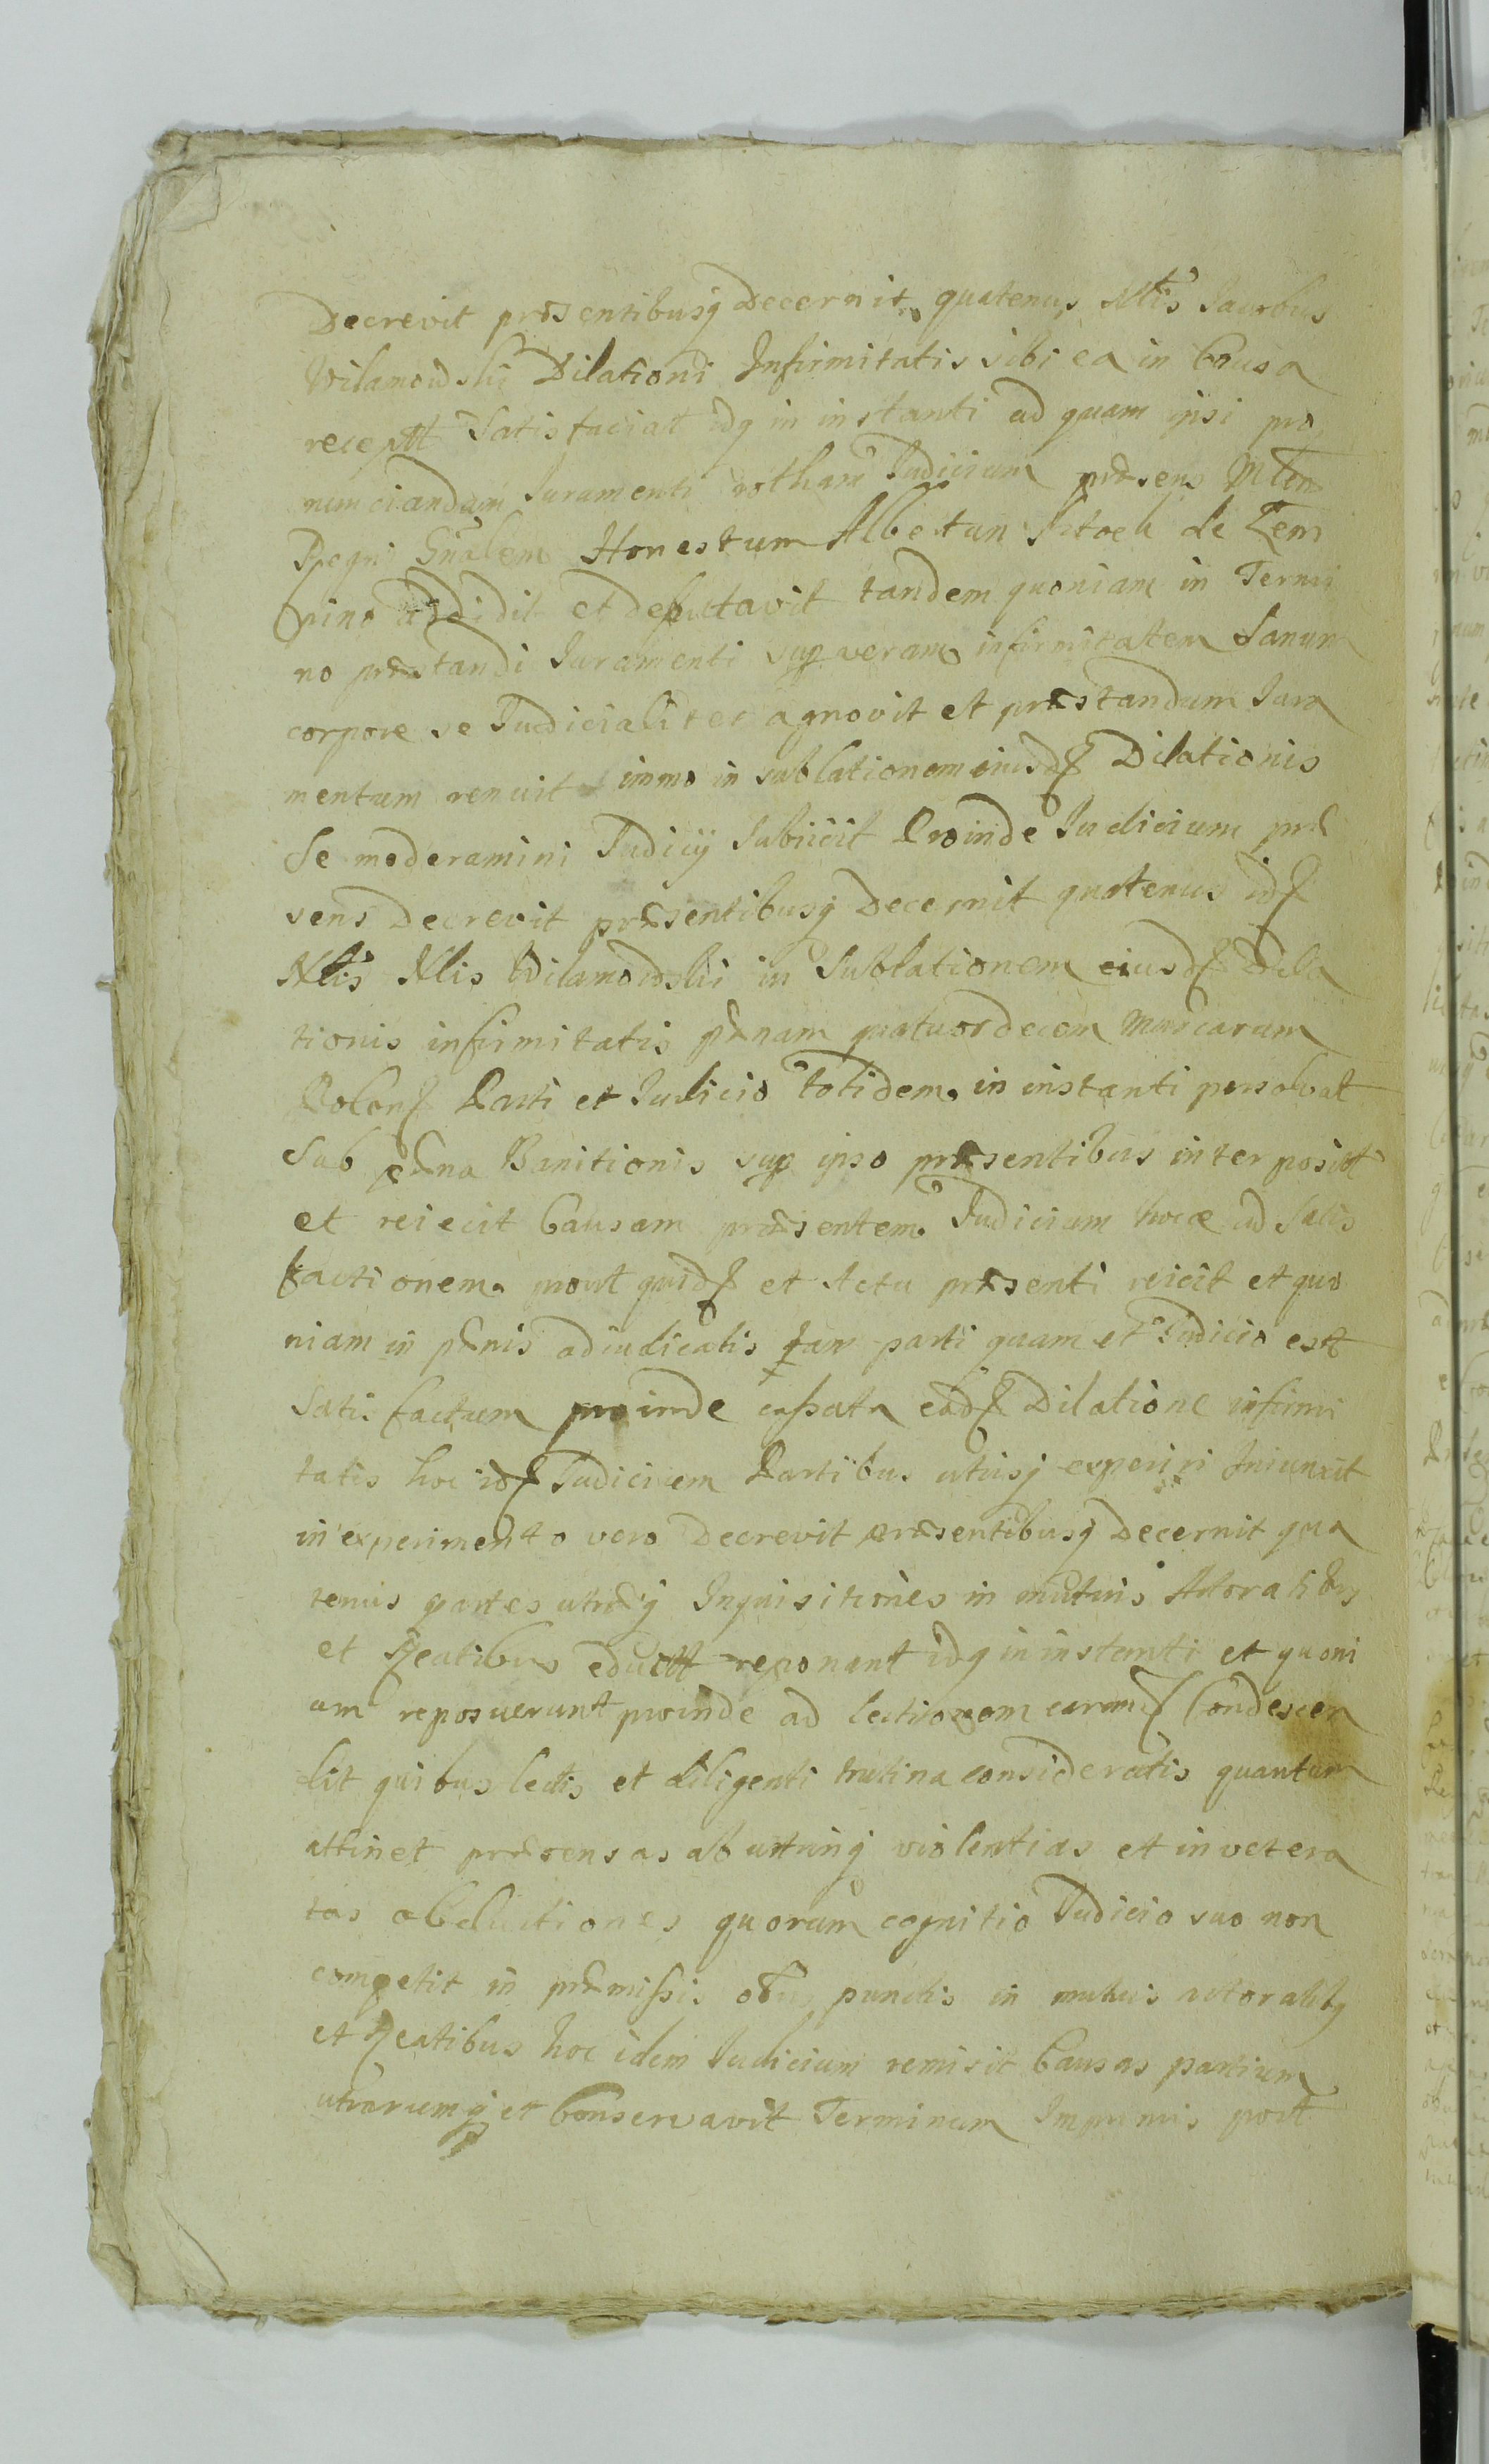 Decrevit præsentibusq Decernit quatenus Nlis Jacobus
Wilamowski Dilationi Infirmitatis sibi ea in Causa
receptæ Satisfaciat idq in instanti ad quam ipsi pro
nunciandam Juramenti rotham Judicium præsens Mtem
Regni Gnalem Honestum Albertum de Zem
addidit et deputavit tandem quoniam in Termi
no præstandi Juramenti sup veram infirmitatem Sanum
corpore se Judicialiter agnovit et præstandum Jura
mentum renuit immo in sublationem eiusd Dilationis
Se moderamini Judicij Subiicit Proinde Judicium præ
sens Decrevit præsentibusq Decernit quatenus id
Nlis Nlis Wilamowski in Sublationem eiusd Dila
tionis infirmitatis pænam quatuordecem Marcarum
Polon Parti et Judicio totidem in instanti persolvat
Sub pæna Banitionis sup ipso præsentibus interposit
et reiecit Causam præsentem Judicium hocce ad Satis
factionem prout quid et Actu præsenti reiicit et quo
niam in pænis adiudicatis tam parti quam et Judicio est
Satisfactum proinde cassata ead Dilatione infirmi
tatis hoc id Judicium Partibus utrisq experiri Iniunxit
in experimento vero Decrevit præsentibusq Decernit qua
tenus partes utræq Inquisitiones in mutuis Actoratibus
et Reatibus educt reponant idq in instanti et quoni
am reposuerunt proinde ad lectionem earund Condescen
dit quibus lectis et diligenti trutina consideratis quantum
attinet prætensas ab utrinq violentias et invetera
tas abductiones quorum cognitio Judicio suo non
competit in præmissis punctis in mutuis actoratibq
et Reatibus hoc idem Judicium remisit Causas partium
utrarumq et Conservavit Terminum Imprimis post